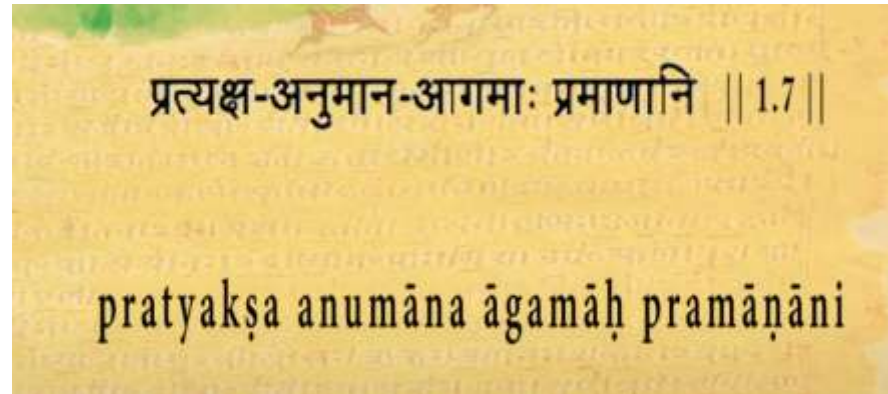 प्रत्यक्ष-अनुमान-आगमाः प्रमाणानि || 1.7 ||
pratyakṣa anumāna āgamāḥ pramāṇāni